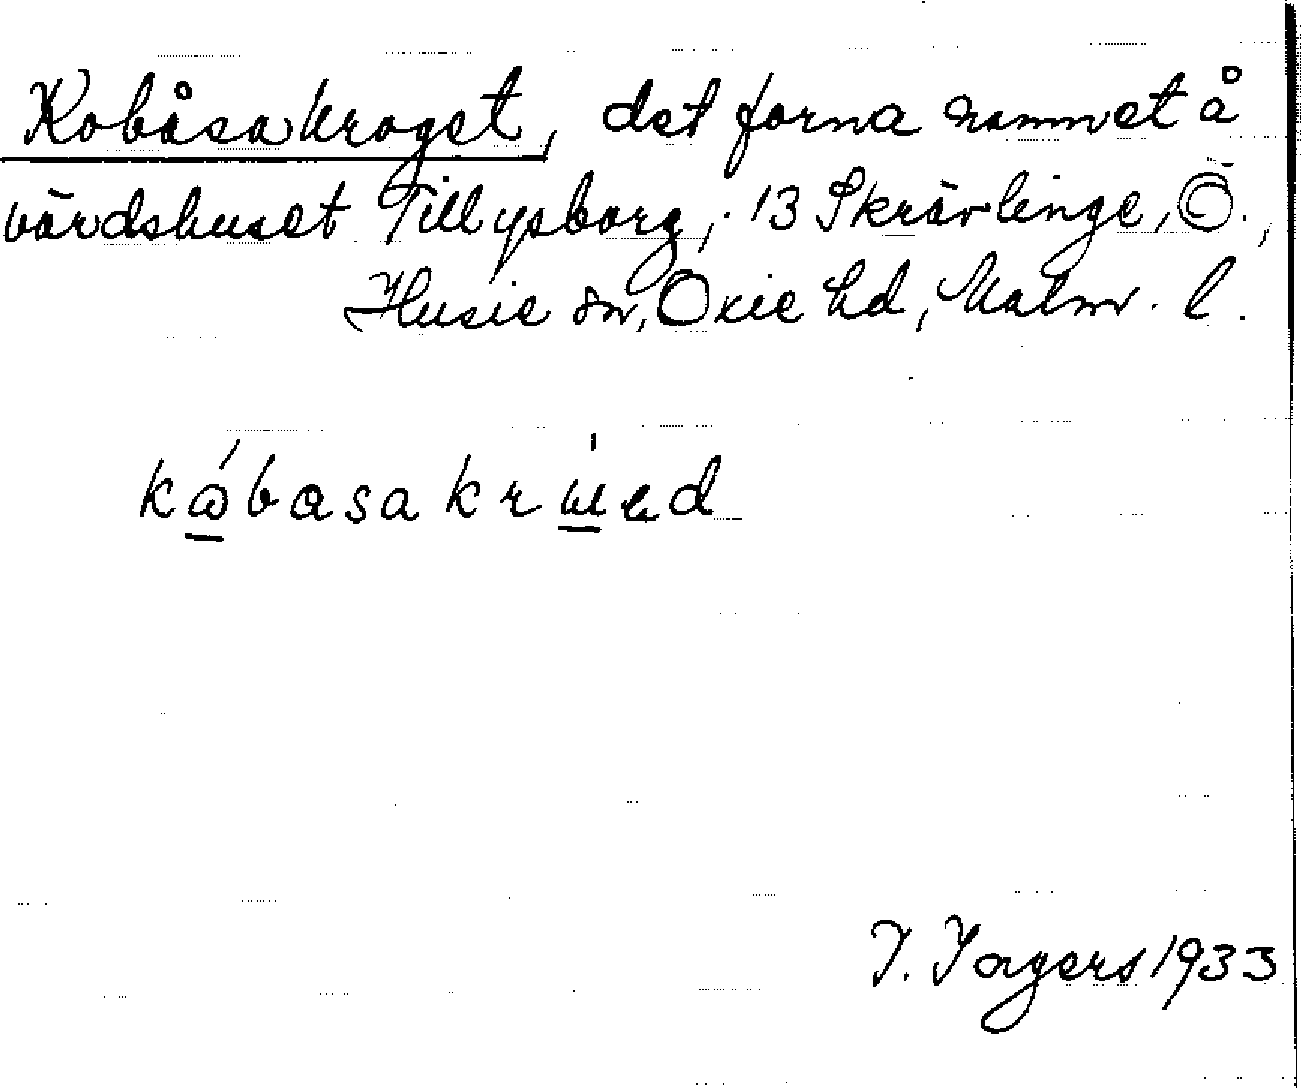 Kobåsakroget, det forna namnet å
värdshuset Tillysborg, 13 Skrävlinge, Ö.,
Husie sn, Oxie hd, Malm. l.
kåbasakr
I. Ingers 1933